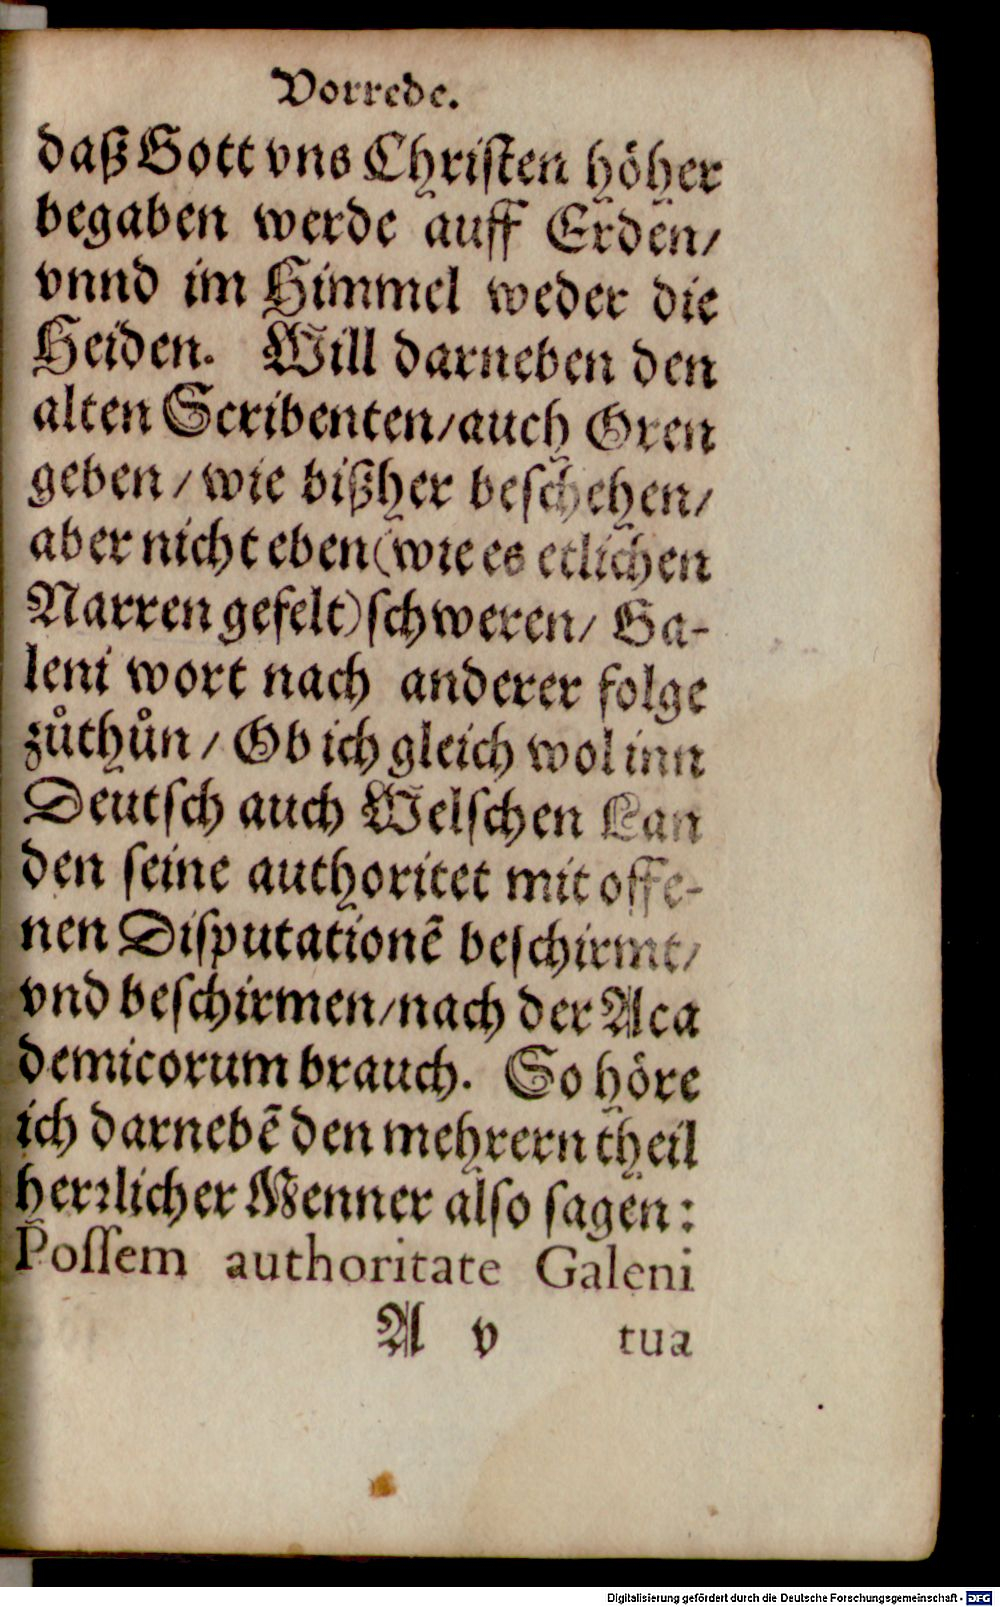 Vorrede.
daß Gott vns Christen höher
begaben werde auff Erden/
vnnd im Himmel weder die
Heiden. Will darneben den
alten Scribenten/auch Oren
geben/wie bißher beschehen/
aber nicht eben(wie es etlichen
Narren gefelt)schweren/ Ga-
leni wort nach anderer folge
zůthůn/ Ob ich gleich wol inn
Deutsch auch Welschen Lan
den seine authoritet mit offe-
nen Disputationẽ beschirmt/
vnd beschirmen/nach der Aca
demicorum brauch. So höre
ich darnebẽ den mehrern theil
herꝛlicher Menner also sagen:
Possem authoritate Galeni
A v tua
Digitalisierung gefördert durch die Deutsche Forschungsgemeinschaft - DFG